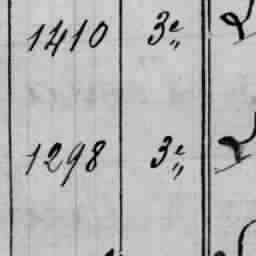 1410 3e„
1298 3e„